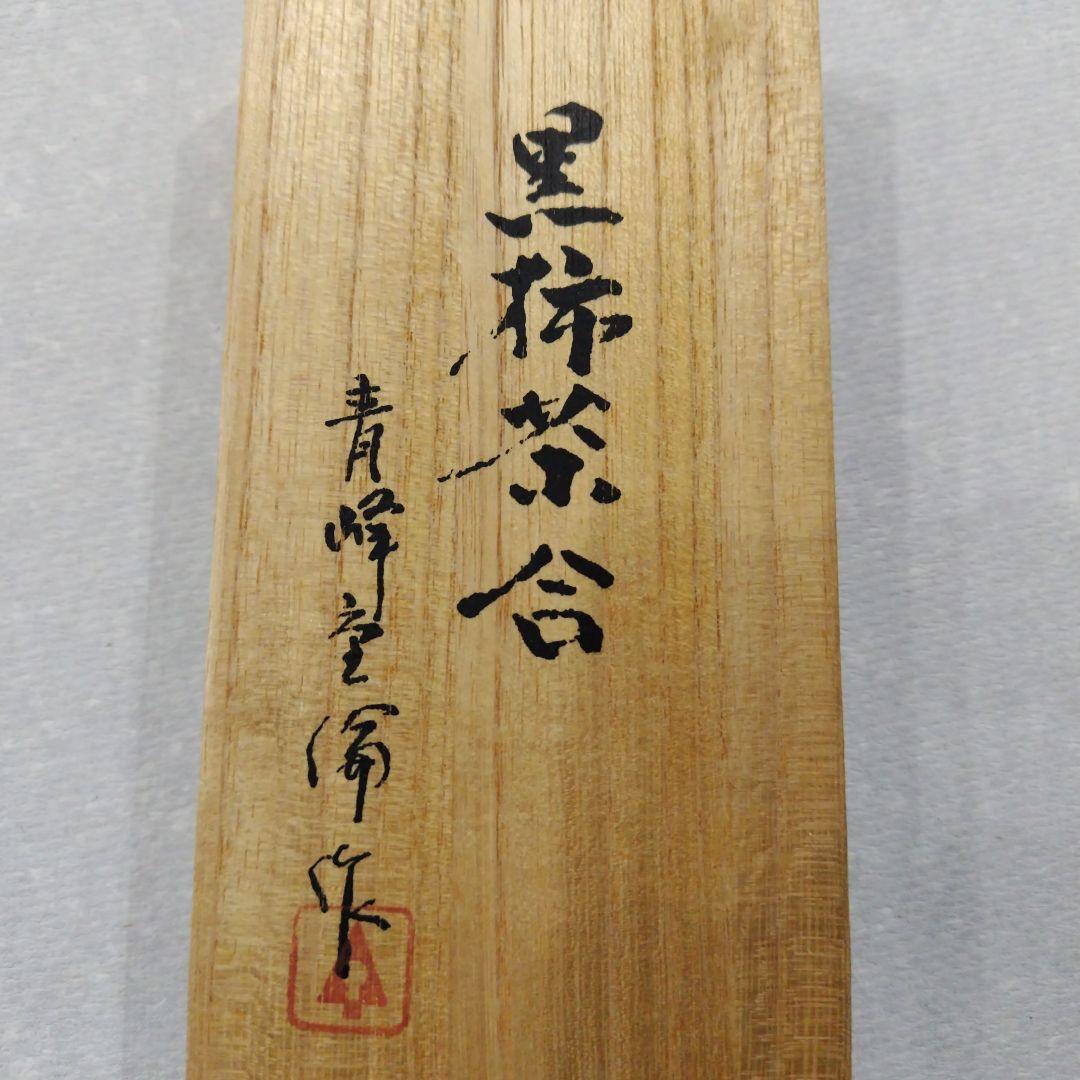 黒柿茶合
青峰堂倫作